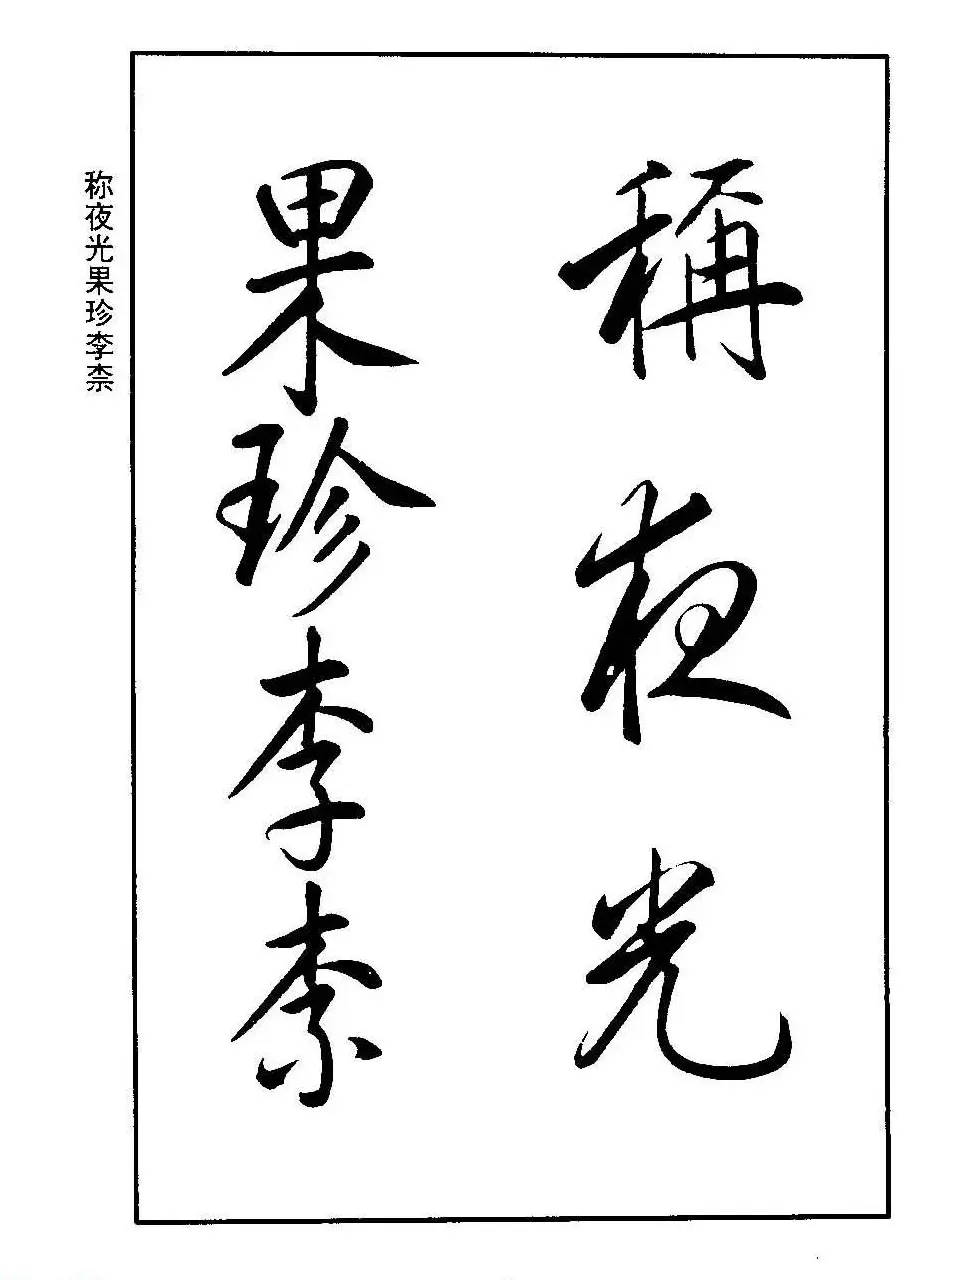 稱夜光
果珍李柰
称夜光果珍李柰